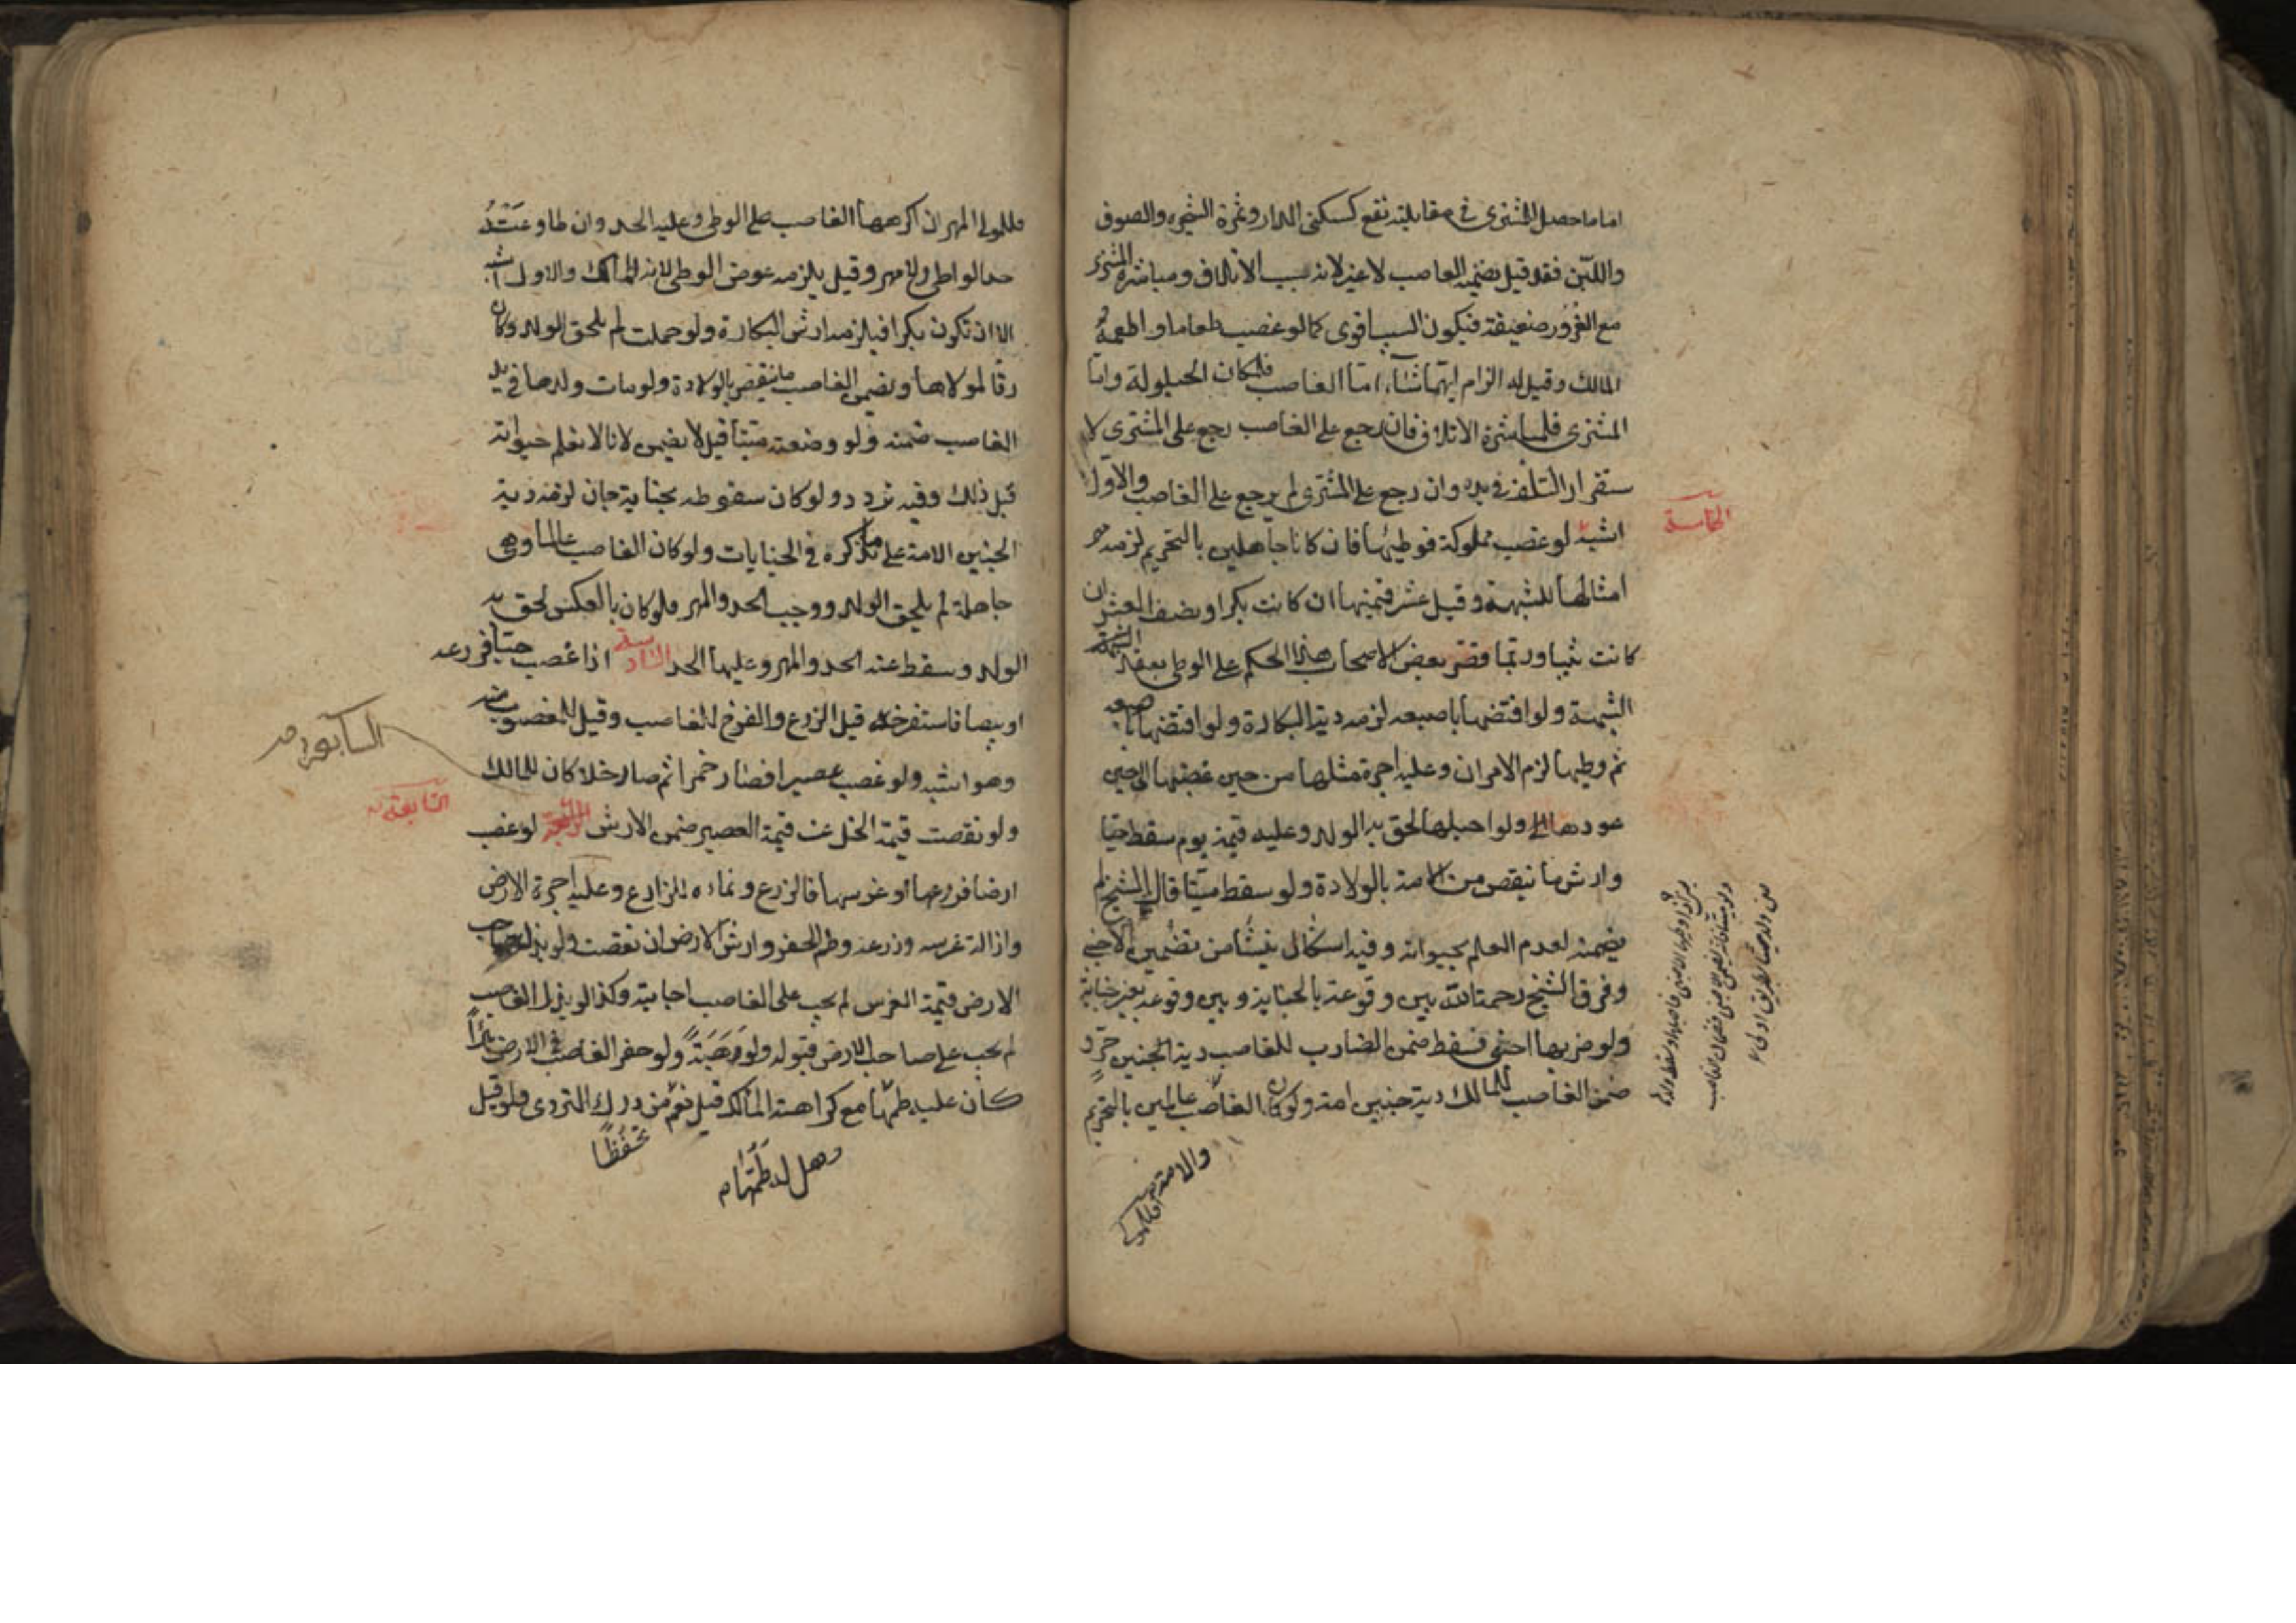 اما ما حصل للمشتری فی مقابلته نفع کسکنی الدار وثمرة الشجره والصوف
واللبن فقد قیل یضمنه الغاصب لا غیر لانه سبب الاتلاف ومباشرة المشتری
مع الغرور ضعیفة فیکون السبب اقوی کما لو غصب طعاما واطعمه
المالک وقیل له الزام ایهما شاء اما الغاصب فلمکان الحیلولة واما
المشتری فلمباشرة الاتلاف فان رجع علی الغاصب رجع علی المشتری لا
ستقرار التلف فی یده وان رجع علی المشتری لم یرجع علی الغاصب والاول
الخامسة
اشبه لو غصب مملوکة فوطیها فان کانا جاهلین بالتحریم لزمه مهر
امثالها للشبهة وقیل عشر قیمتها ان کانت بکرا ونصف العشر ان
کانت ثیبا وربما قصر بعض الاصحاب هذا الحکم علی الوطی بعقد
الشبهة ولو افتضها باصبعه لزمه دیة البکارة ولو افتضها باصبعه
ثم وطیها لزم الامران وعلیه اجرة مثلها من حین غصبها الی حین
عودها ولو احبلها لحق به الولد وعلیه قیمته یوم سقط حیا
وارش ما ینقص من الامة بالولادة ولو سقط میتا قال الشیخ لم
یضمنه لعدم العلم بحیوته وفیه اشکال ینشأ من تضمین الاجنبی
وفرق الشیخ رحمة الله بین وقوعه بالجنایة وبین وقوعه بغیر جنایة
ولو ضربها اجنبی فسقط ضمن الضارب للغاصب دیة الجنین حر و
ضمن الغاصب للمالک دیة جنین امة ولو کان الغاصب عالمین بالتحریم
والامة
فللمولی المهر ان اکرهها الغاصب علی الوطی وعلیه الحد وان طاوعته
حد الواطی ولا مهر وقیل یلزمه عوض الوطی لانه للمالک والاول اشبه
الا ان تکون بکرا فیلزمه ارش البکارة ولو حملت لم یلحق الولد وکان
رقا لمولاها ویضمن الغاصب ما ینقص بالولادة ولو مات ولدها فی ید
الغاصب ضمنه ولو وضعته میتا قیل لا یضمن لانا لا نعلم حیوته
قبل ذلک وفیه تردد ولو کان سقوطه بجنایة جان لزمه دیة
الجنین الامة علی ما نذکره فی الجنایات ولو کان الغاصب عالما وهی
جاهلة لم یلحق الولد ووجب الحد والمهر فلو کان بالعکس لحق به
الولد وسقط عنه الحد والمهر وعلیها الحد السادسة اذا غصب حبا فزرعه
او بیضا فاستفرخه قیل الزرع والفرخ للغاصب وقیل للمغصوب منه
السابعة
وهو اشبه ولو غصب عصیرا فصار خمرا ثم صار خلا کان للمالک
السابعة
ولو نقصت قیمة الخل عن قیمة العصیر ضمن الارش لو غصب
ارضا فزرعها او غرسها فالزرع ونماؤه للزارع وعلیه اجرة الارض
وازالة غرسه وزرعه وطم الحفر وارش الارض ان نقصت ولو بذل صاحب
الارض قیمة الغرس لم یجب علی الغاصب اجابته وکذا لو بذل الغاصب
لم یجب علی صاحب الارض قبوله ولو وهبته ولو حفر الغاصب فی الارض بئرا
کان علیه طمها مع کراهة المالک قیل نعم من درک التردی ولو قیل
تحفظا
وهل له طمها